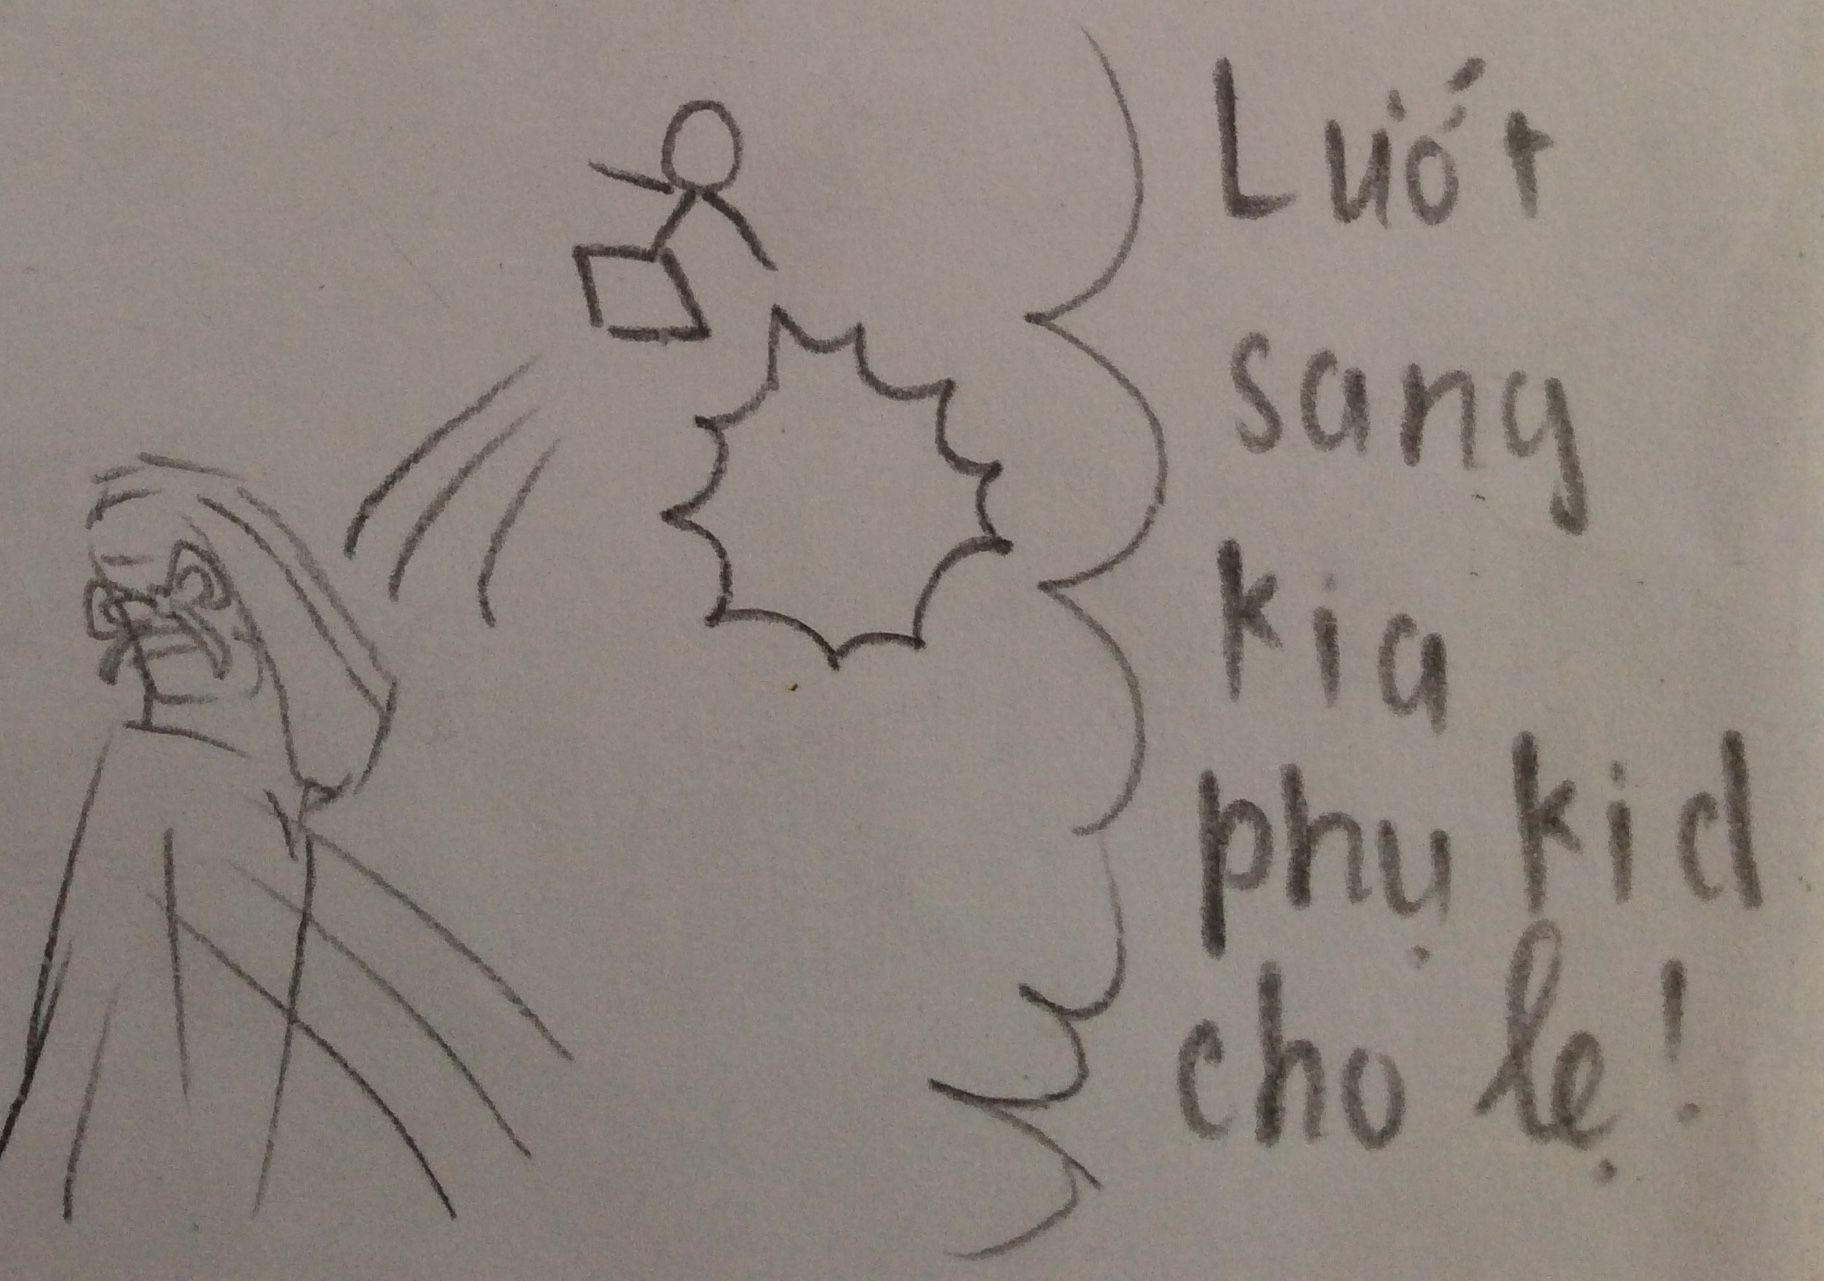 Lướt
sang
kia
phụ kid
cho lẹ!